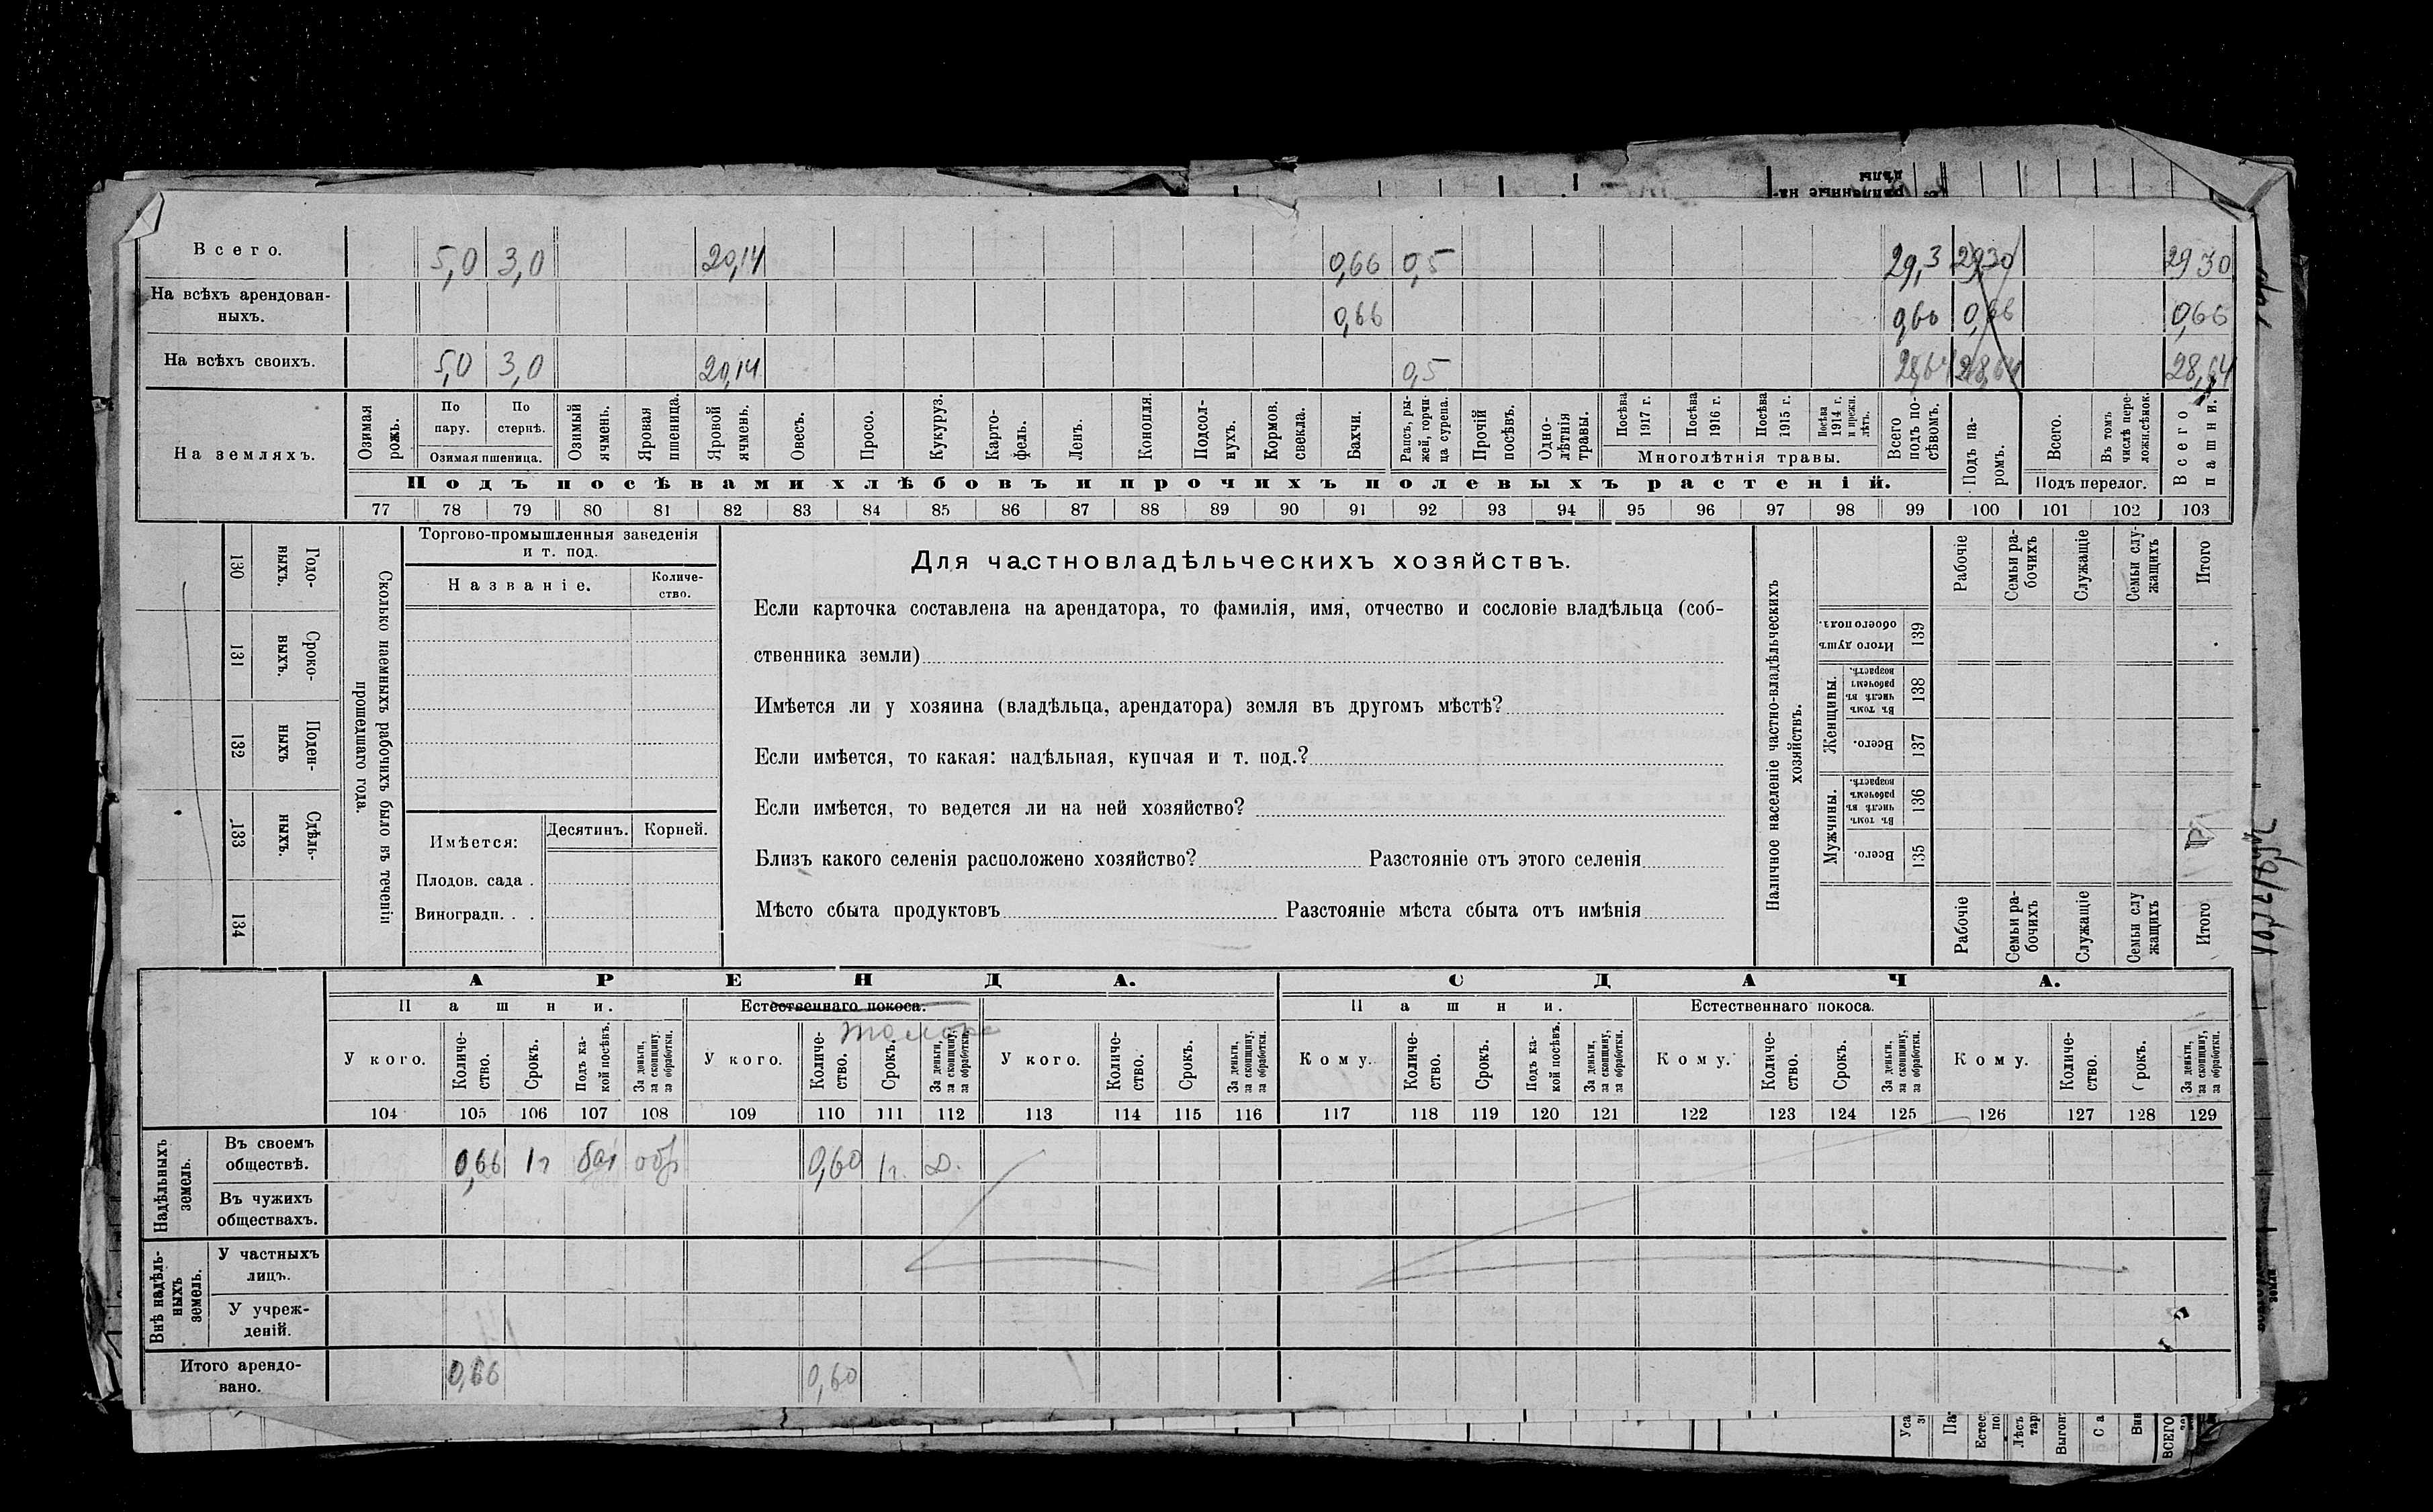 Всего. 5,0 3,0 20,14 0,66 0,5 29,3 29,30 29 30
На всѣхъ арендован-
ныхъ. 0,66 0,66 0,66 0,66
На всѣхъ своихъ. 5,0 3,0 20,14 0,5 28,64 28,64 28,64
На земляхъ.
Озимая рожь.
По пару.
По стернѣ.
Озимая пшеница.
Озимый ячмень.
Яровая пшеница.
Яровой ячмень.
Овесъ.
Просо.
Кукуруз.
Карто-
фель.
Ленъ.
Конопля.
Подсол-
нухъ.
Кормов.
свекла.
Бахчи.
Рапсъ, ры-
жей, горчи-
ца сурепа.
Прочій
посѣвъ.
Одно-
лѣтнія
травы.
Посѣва
1917 г.
Посѣва
1916 г.
Посѣва
1915 г.
Посѣва
1914 г.
и прежн.
лѣтъ.
Многолѣтнія травы.
Всего
подъ по-
сѣвомъ.
Подъ па-
ромъ.
Всего.
Въ томъ
числѣ пере-
ложн.сѣнок.
Подъ перелог.
Всего
пашни.
Подъ посѣвами хлѣбовъ и прочихъ полевыхъ растеній.
77 78 79 80 81 82 83 84 85 86 87 88 89 90 91 92 93 94 95 96 97 98 99 100 101 102 103
130 Годо-
ныхъ.
131 Сроко-
выхъ.
132 Поден-
ныхъ
133 Сдѣль-
ныхъ.
134
Сколько наемныхъ рабочихъ было въ теченіи
прошедшаго года.
Торгово-промышленныя заведенія
и т. под.
Названіе.
Количе-
ство.
Имѣется:
Десятинъ. Корней.
Плодов. сада .
Виноградн. . .
Для частновладѣльческихъ хозяйствъ.
Если карточка составлена на арендатора, то фамилія, имя, отчество и сословіе владѣльца (соб-
ственника земли)
Имѣется ли у хозяина (владѣльца, арендатора) земля въ другомъ мѣстѣ?
Если имѣется, то какая: надѣльная, купчая и т. под.?
Если имѣется, то ведется ли на ней хозяйство?
Близъ какого селенія расположено хозяйство? Разстояніе отъ этого селенія
Мѣсто сбыта продуктовъ Разстояніе мѣста сбыта отъ имѣнія
Наличное населеніе частно-владѣльческихъ
хозяйствъ.
Рабочіе
Семьи ра-
бочихъ
Служащіе
Семьи слу
жащихъ
Итого
Итого душъ
обоего пола.
139
Женщины.
Въ томъ
числѣ въ
рабочемъ
возрастѣ.
138
Всего.
137
Мужчины.
Въ томъ
числѣ въ
рабочемъ
возрастѣ.
136
Всего.
135
Рабочіе
Семьи ра-
бочихъ
Служащіе
Семьи слу
жащихъ
Итого
АРЕНДА. СДАЧА.
Пашни. Естественнаго покоса. Пашни. Естественнаго покоса.
толока
У кого.
Количе-
ство.
Срокъ.
Подъ ка-
кой посѣвъ.
За деньги,
за скопщину,
за обработки.
У кого.
Количе-
ство.
Срокъ.
За деньги,
за скопщину,
за обработки.
У кого.
Количе-
ство.
Срокъ.
За деньги,
за скопщину,
за обработки.
Кому.
Количе-
ство.
Срокъ.
Подъ ка-
кой посѣвъ.
За деньги,
за скопщину,
за обработки.
Кому.
Количе-
ство.
Срокъ.
За деньги,
за скопщину,
за обработки.
Кому.
Количе-
ство.
Срокъ.
За деньги,
за скопщину,
за обработки.
104 105 106 107 108 109 110 111 112 113 114 115 116 117 118 119 120 121 122 123 124 125 126 127 128 129
Надѣльныхъ
земель.
Въ своемъ
обществѣ. 0,66 1г бах обр 0,60 1г. д.
Въ чужихъ
обществахъ.
Внѣ надѣль-
ныхъ
земель.
У частныхъ
лицъ.
У учреж-
деній.
Итого арендо-
вано. 0,66 0,60